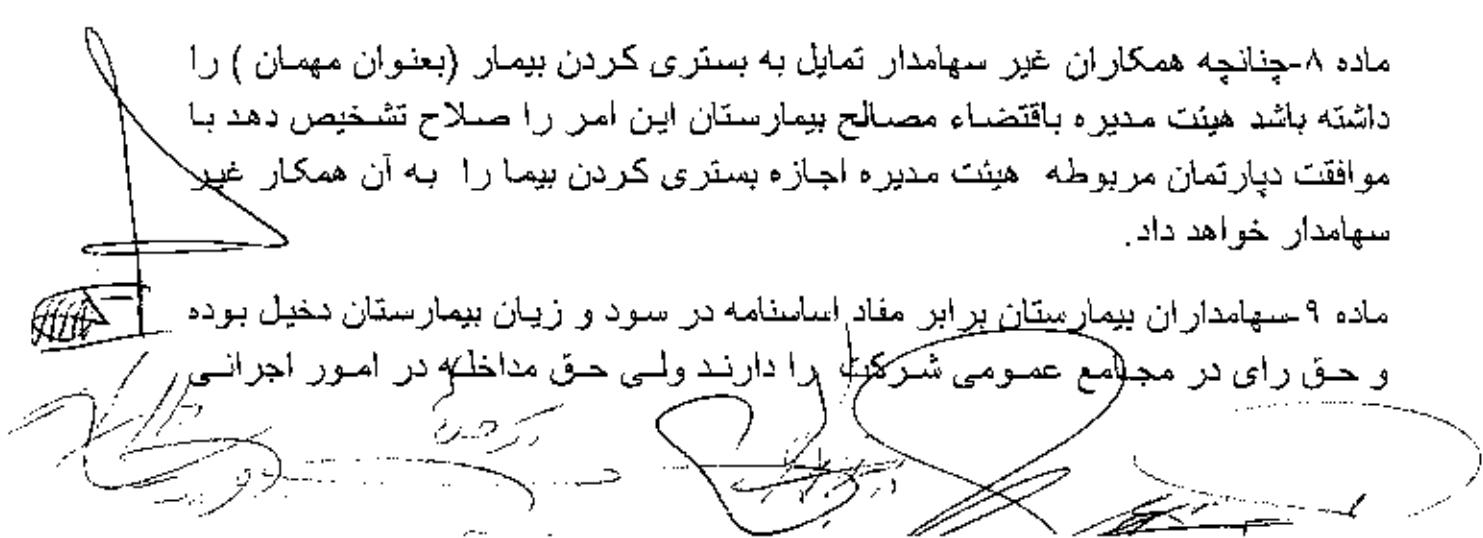 ماده ۸-چنانچه همکاران غیر سهامدار تمایل به بستری کردن بیمار (بعنوان مهمان ) را
داشته باشد هیئت مدیره باقتضاء مصالح بیمارستان این امر را صلاح تشخیص دهد با
موافقت دپارتمان مربوطه هیئت مدیره اجازه بستری کردن بیما را به آن همکار غیر
سهامدار خواهد داد.
ماده ۹-سهامداران بیمارستان برابر مفاد اساسنامه در سود و زیان بیمارستان دخیل بوده
و حق رای در مجامع عمومی شرکت را دارند ولی حق مداخله در امور اجرائی